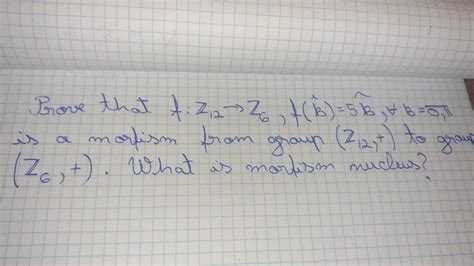 Prove that f: Z₁₂→Z₆, f(k̂)=5k̂, ∀ k=0,11
is a morfism from group (Z₁₂,+) to group
(Z₆,+). What is morfism nucleus?